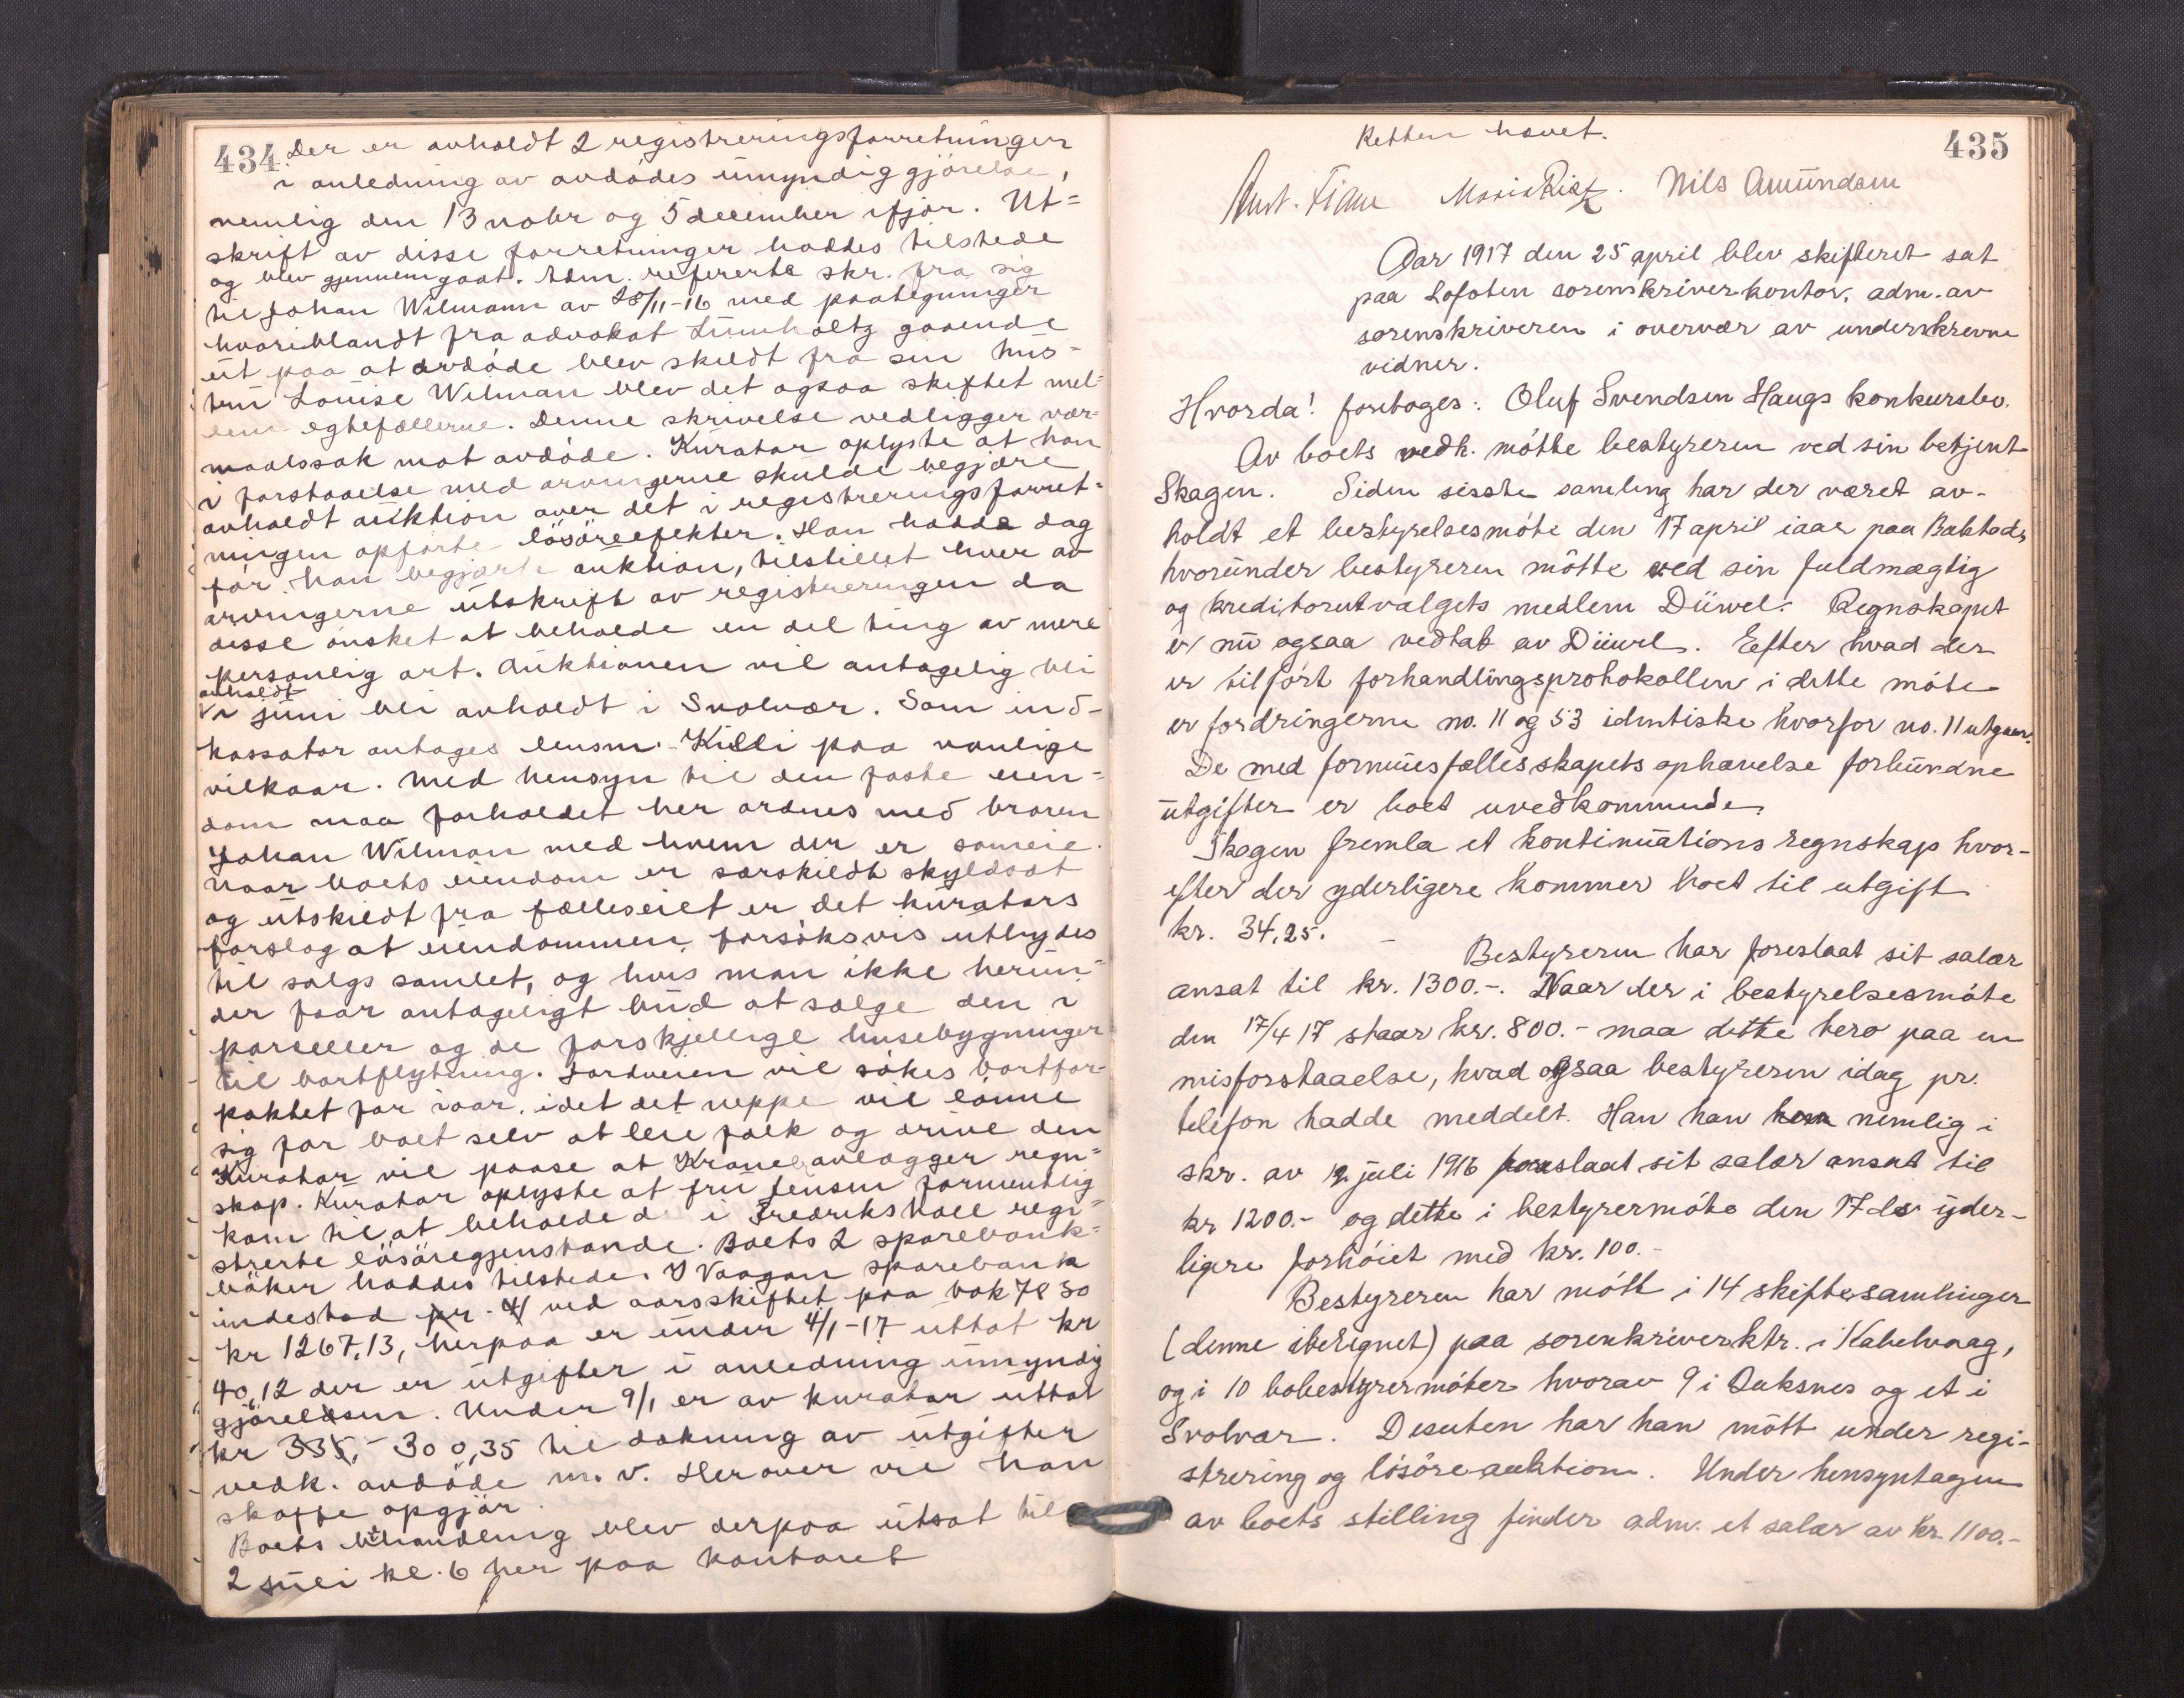 434 Der er avholdt 2 registreringsforretninger
i anledning av avdødes umyndiggjörelse,
nemlig den 13 nobr og 5 december ifjor. Ut=
skrift av disse forretninger haddes tilstede
og blev gjennemgaat. Adm. refererte skr. fra sig
til Johan Wilmann av 28/11-16 med paategninger
hvoriblandt fra advokat Lumholtz gaaende
ut paa at avdøde blev skildt fra sin hus=
tru Louise Wilman blev det ogsaa skiftet mel=
lem egtefællerne. Denne skrivelse vedligger vær-
maalssak mot avdøde. Kurator oplyste at han
i forstaaelse med arvingerne skulde begjære
avholdt auktion over det i registreringsforret=
ningen opførte lösöreefekter. Han hadde dag
før han begjærte auktion, tilstillet hver av
arvingerne utskrift av registreringen da
disse ønsket at beholde en del ting av mere
personlig art. Auktionen vil antagelig bli
avholdt
i juni bli avholdt i Svolvær. Som ind-
kassator antages lensm. Killi paa vanlige
vilkaar. Med hensyn til den faste eien=
dom maa forholdet her ordnes med broren
Johan Wilman med hvem der er sameie.
Naar boets eiendom er særskildt skyldsat
og utskildt fra fælleseiet er det kurators
forslag at eiendommen forsøksvis utbydes
til salgs samlet, og hvis man ikke herun=
der faar antageligt bud at sælge den i
parseller og de forskjellige husebygninger
til bortflytning. Jordveien vil søkes bortfor-
paktet for iaar, idet det neppe vil lønne
sig for boet selv at leie folk og drive den
Kurator vil paase at Krane avlægger regn=
skap. Kurator oplyste at fru Jensen formentlig
kom til at beholde d. i Fredrikshall regi=
strerte lösöregjenstande. Boets 2 sparebank=
bøker haddes tilstede. I Vaagan sparebank
indestod pr. 4/ ved aarsskiftet paa bok 7830
kr 1267,13, herpaa er under 4/1-17 uttat kr
40,12 der er utgifter i anledning umyndig
gjörelsen. Under 9/1 er av kurator uttat
kr 335,- 300,35 til dækning av utgifter
vedk. avdøde m.v. Herover vil han
skaffe opgjör.
Boets behandling blev derpaa utsat til
2 juli kl. 6 her paa kontoret
435
Retten hævet.
Aust. Fiane Maria Rist. Nils Amundsen
Aar 1917 den 25 april blev skifteret sat
paa Lofoten sorenskriverkontor, adm. av
sorenskriveren i overvær av underskrevne
vidner.
Hvorda! foretoges: Oluf Svendsen Haugs konkursbo.
Av boets vedk. møtte bestyreren ved sin betjent
Skagen. Siden sisste samling har der været av-
holdt et bestyrelsesmøte den 17 april iaar paa Bakstad,
hvorunder bestyreren møtte ved sin fuldmægtig
og kreditorutvalgets medlem Düwel. Regnskapet
er nu ogsaa vedtat av Düwel. Efter hvad der
er tilført forhandlingsprotokollen i dette møte
er fordringerne no. 11 og 53 identiske hvorfor no. 11 utgaar.
De med formuesfællesskapets ophævelse forbundne
utgifter er boet uvedkommende.
Skagen fremla et kontinuations regnskap hvor-
efter der yderligere kommer boet til utgift
kr. 34,25. -
Bestyreren har foreslaat sit salær
ansat til kr. 1300.-. Naar der i bestyrelsesmøte
den 17/4 17 staar kr. 800.- maa dette bero paa en
misforstaaelse, hvad ogsaa bestyreren idag pr.
telefon hadde meddelt. Han han nemlig i
skr. av 12 juli 1916 foreslaat sit salær ansat til
kr 1200.- og dette i bestyrermøte den 17 ds yder-
ligere forhøiet med kr. 100.-
Bestyreren har møtt i 14 skiftesamlinger
(denne iberegnet) paa sorenkriverktr. i Kabelvaag,
og i 10 bobestyrermøter hvorav 9 i Buksnes og et i
Svolvær. Desuten har han møtt under regi-
strering og løsøreauktion. Under hensyntagen
av boets stilling finder adm. et salær av kr. 1100.-